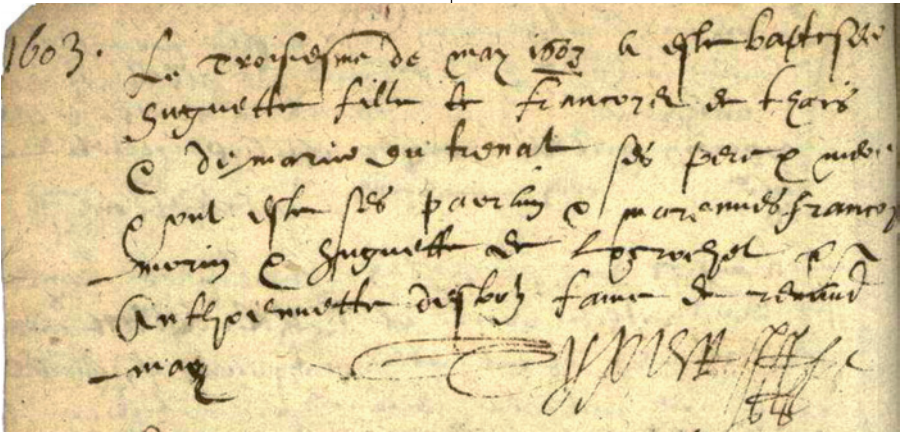 1603.
Le troisiesme de may 1603 a este baptisee
huguette fille de francoys de thois
& de marie du trenat ses pere & mere
& ont este ses parrin & marennes francoys
morin & huguette de & 
Anthoennette desboys fame de renaud
may